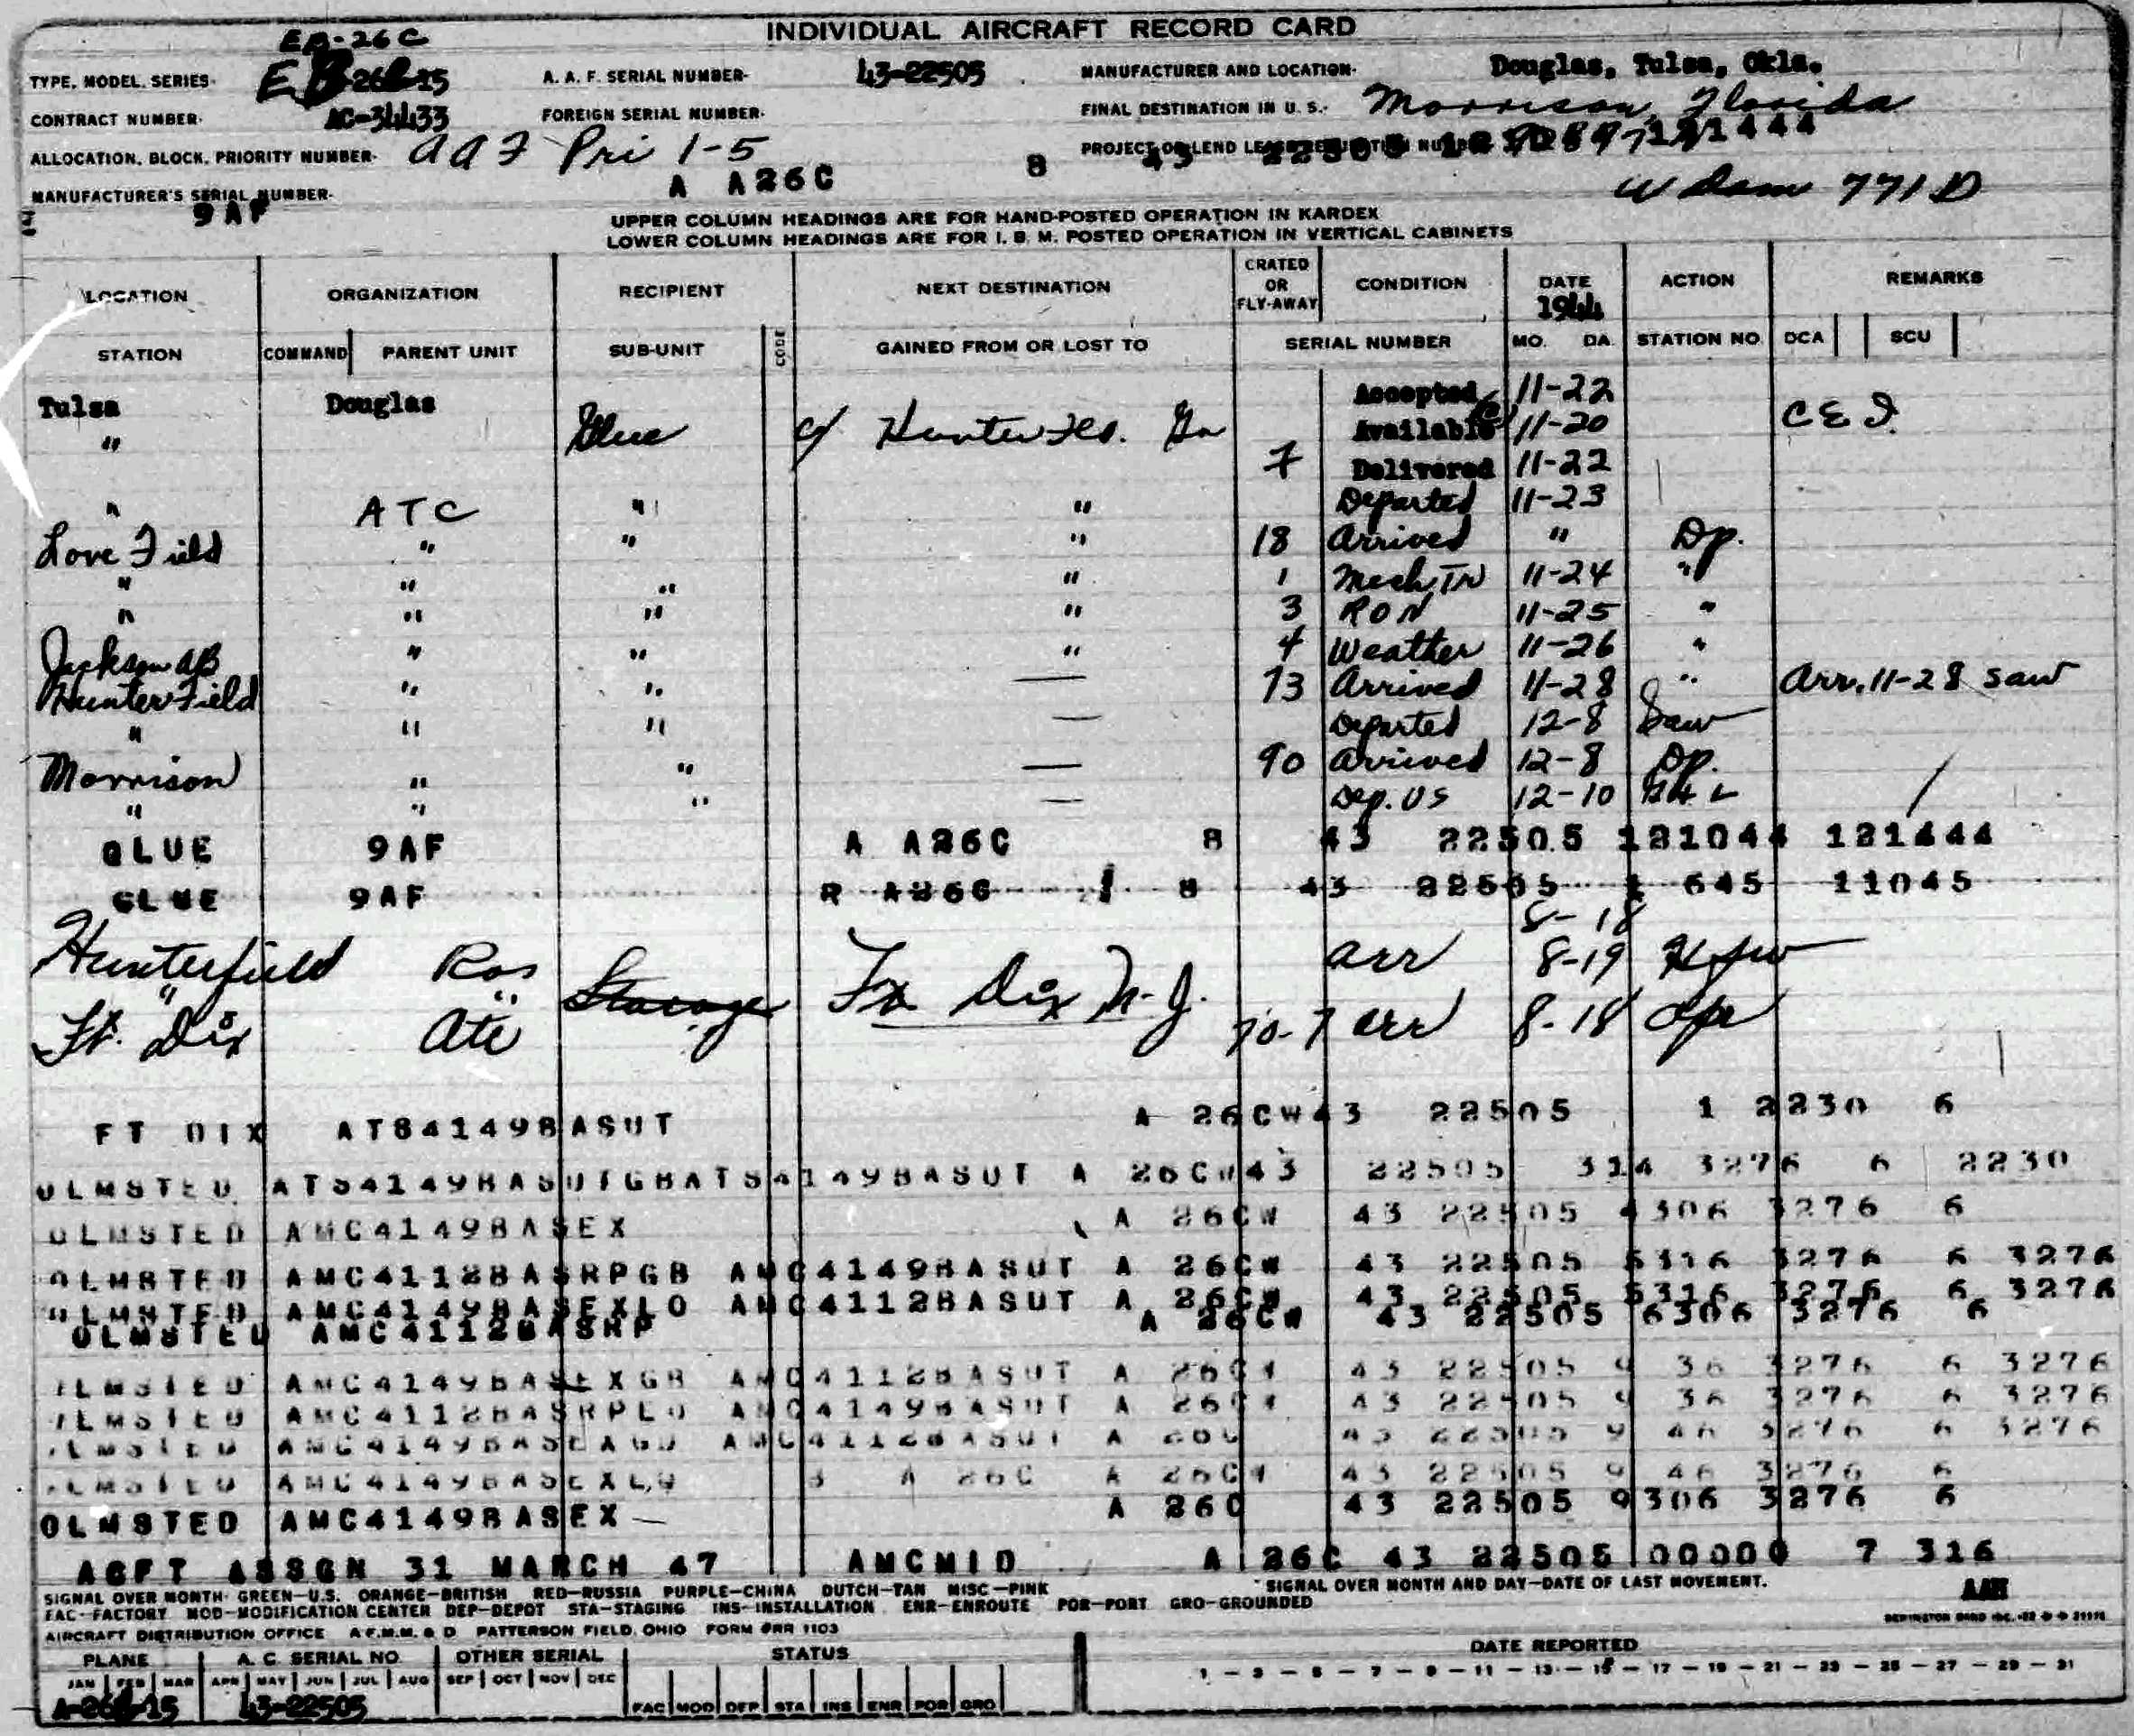 INDIVIDUAL AIRCRAFT RECORD CARD
EB-26C
TYPE, MODEL, SERIES- EB 26C-15 A. A. F. SERIAL NUMBER- 43-22505 MANUFACTURER AND LOCATION- Douglas, Tulsa, Okla.
CONTRACT NUMBER- AC-34433 FOREIGN SERIAL NUMBER- FINAL DESTINATION IN U. S.- Morrison, Florida
ALLOCATION, BLOCK, PRIORITY NUMBER- AAF Pri 1-5 8 PROJECT OR LEND LEASE 43 22505 121444
MANUFACTURER'S SERIAL NUMBER- A A26C 771 D
9AF
UPPER COLUMN HEADINGS ARE FOR HAND-POSTED OPERATION IN KARDEX
LOWER COLUMN HEADINGS ARE FOR I. B. M. POSTED OPERATION IN VERTICAL CABINETS
LOCATION ORGANIZATION RECIPIENT NEXT DESTINATION CRATED OR FLY-AWAY CONDITION DATE 1944 ACTION REMARKS
STATION COMMAND PARENT UNIT SUB-UNIT CODE GAINED FROM OR LOST TO SERIAL NUMBER MO. DA. STATION NO. DCA SCU
Tulsa Douglas Accepted 11-22
" Glue c/ Hunter Fld. Ga Available 11-20 C E I
7 Delivered 11-22
" ATC " " Departed 11-23
Love Field " " " 18 Arrived " Dp.
" " " " 1 Mech TN 11-24 "
" " " " 3 RON 11-25 "
Jackson AB " " " 4 Weather 11-26 "
Hunter Field " " — 73 Arrived 11-28 " Arr. 11-28 Saw
" " " — Departed 12-8 Saw
Morrison " " — 90 Arrived 12-8 Dp.
" " " — Dep. US 12-10 /
GLUE 9AF A A26C 8 43 22505 121044 121444
GLUE 9AF R A26C 8 43 22505 1 645 11045
8-18
Hunterfield Ras Storage Ft Dix N.J. arr 8-19
Ft. Dix Atc 70-7 arr 8-18
FT DIX ATS4149BASUT A 26CW43 22505 1 2230 6
OLMSTED ATS4149BASUTGBATS4149BASUT A 26CW43 22505 314 3276 6 2230
OLMSTED AMC4149BASEX A 26CW 43 22505 4306 3276 6
OLMSTED AMC4112BASRPGB AMC4149BASUT A 26CW 43 22505 5316 3276 6 3276
OLMSTED AMC4149BASEXLO AMC4112BASUT A 26CW 43 22505 5316 3276 6 3276
OLMSTED AMC4112BASRP A 26CW 43 22505 6306 3276 6
OLMSTED AMC4149BASEXGB AMC4112BASUT A 26CW 43 22505 9 36 3276 6 3276
OLMSTED AMC4112BASRPLO AMC4149BASUT A 26CW 43 22505 9 36 3276 6 3276
OLMSTED AMC4149BASEXGB AMC4112BASUT A 26C 43 22505 9 46 3276 6 3276
OLMSTED AMC4149BASEXLO A 26C A 26CW 43 22505 9 46 3276 6
OLMSTED AMC4149BASEX A 26C 43 22505 9306 3276 6
ACFT ASSGN 31 MARCH 47 AMCMID A 26C 43 22505 00000 7 316
SIGNAL OVER MONTH- GREEN-U.S. ORANGE-BRITISH RED-RUSSIA PURPLE-CHINA DUTCH-TAN MISC-PINK SIGNAL OVER MONTH AND DAY-DATE OF LAST MOVEMENT.
FAC-FACTORY MOD-MODIFICATION CENTER DEP-DEPOT STA-STAGING INS-INSTALLATION ENR-ENROUTE POR-PORT GRO-GROUNDED
AIRCRAFT DISTRIBUTION OFFICE A.F.M.M. & D PATTERSON FIELD, OHIO FORM #RR 1103
PLANE A. C. SERIAL NO. OTHER SERIAL STATUS DATE REPORTED
JAN FEB MAR APR MAY JUN JUL AUG SEP OCT NOV DEC 1 - 3 - 5 - 7 - 9 - 11 - 13 - 15 - 17 - 19 - 21 - 23 - 25 - 27 - 29 - 31
A-26C-15 43-22505 FAC MOD DEP STA INS ENR POR GRO